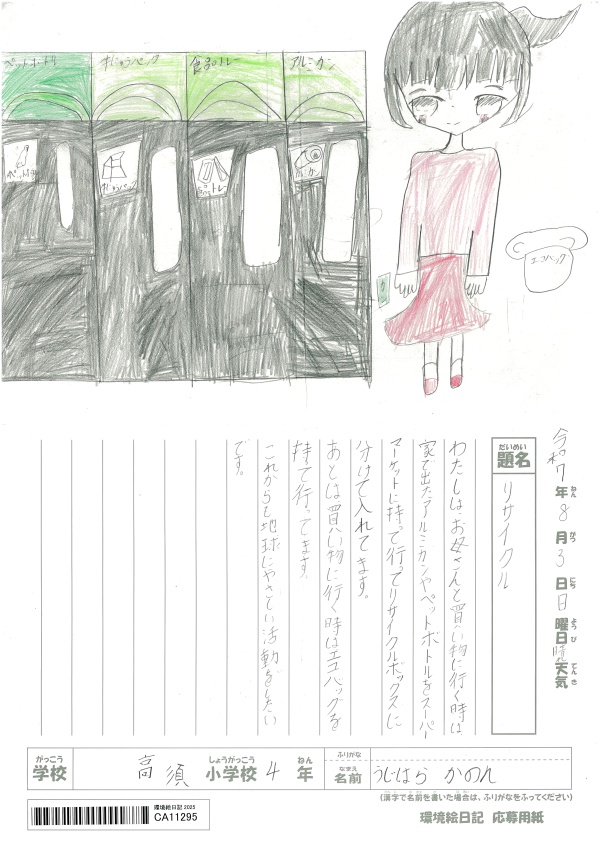 ペットボトル
牛にゅうパック
食品トレー
アルミカン
ペットボトル
牛にゅうパック
食品トレー
アルミカン
カン
エコバック
令和7年8月3日日曜日晴天気
ねん
がつ
にち
ようび
てんき
だいめい
題名
リサイクル
わたしは、お母さんと買い物に行く時は
家で出たアルミカンやペットボトルをスーパー
マーケットに持って行ってリサイクルボックスに
分けて入れてます。
あとは買い物に行く時はエコバッグを
持て行ってます。
これからも地球にやさしい活動をしたい
です。
がっこう
学校
高須
しょうがっこう
小学校
4
ねん
年
ふりがな
なまえ
名前
うじはら かのん
(漢字で名前を書いた場合は、ふりがなをふってください)
環境絵日記 2025
CA11295
環境絵日記 応募用紙